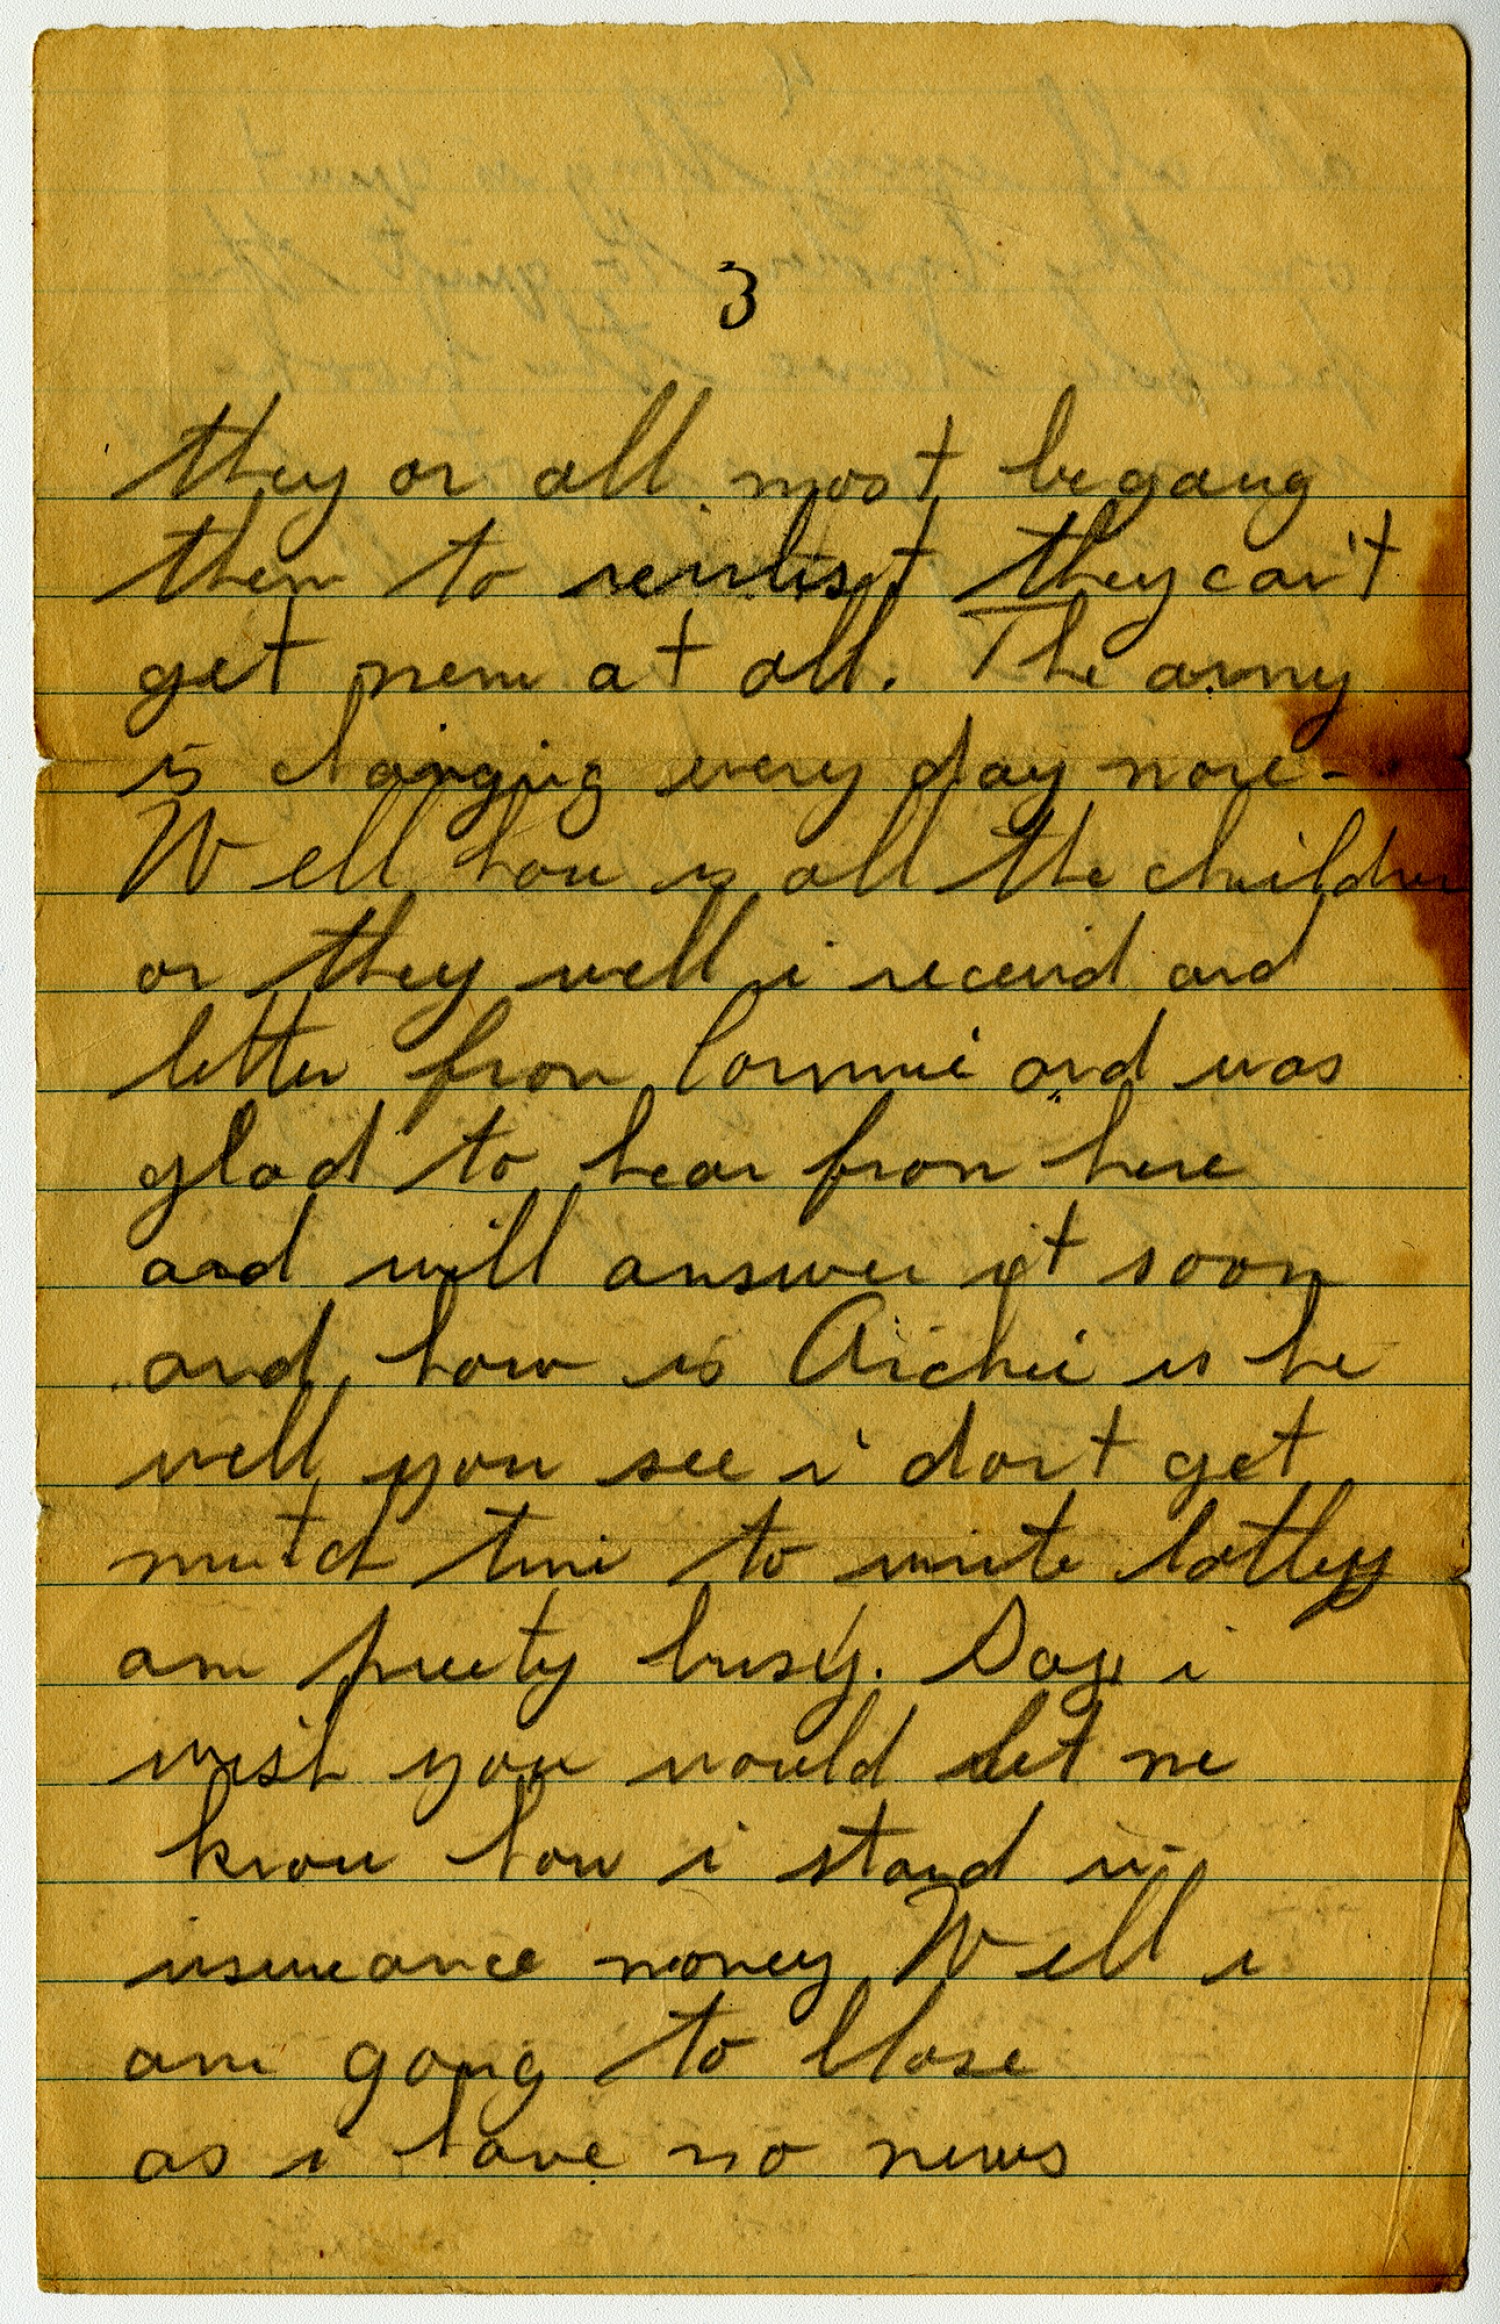 3
they or all most begang
them to reinlist they can't
get nem at all. The army
is changing every day now -
Well how is all the children
or they well i receivd and
letter from Connie and was
glad to hear from here
and will answer it soon
and how is Archie is he
well you see i don't get
mutch time to write lattley
am preety busy. Say i
wish you would let me
know how i stand in
insureance money Well i
am gong to close
as i have no news